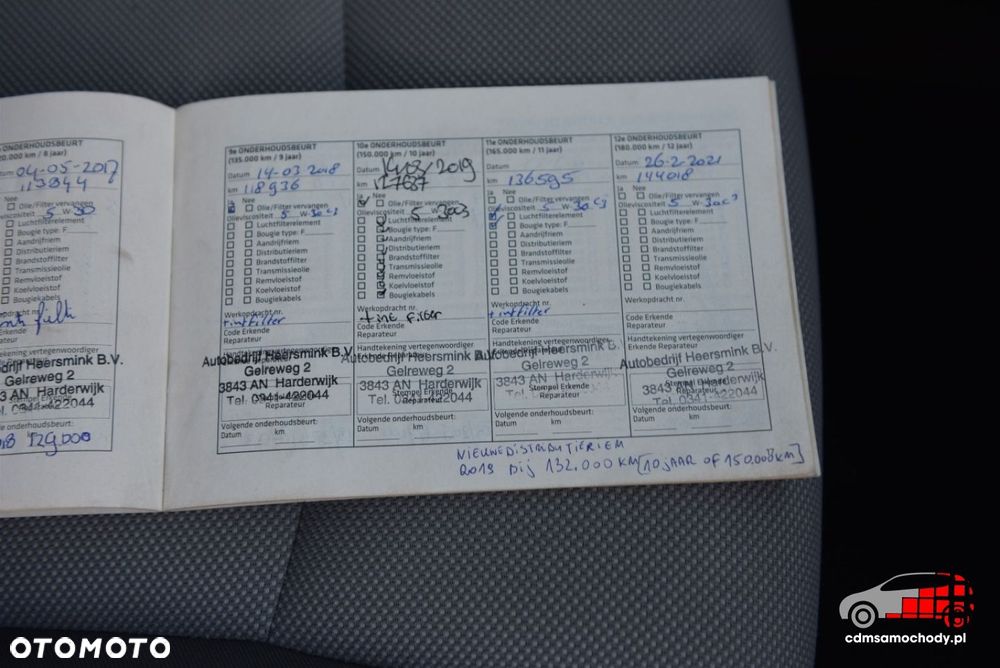 ONDERHOUDSBEURT
20.000 km / 8 jaar)
04-05-2017
113844
Olie/Filter vervangen
5 W-30
Luchtfilterelement
Bougie type: F
Aandrijfriem
Distributieriem
Brandstoffilter
Transmissieolie
Remvloeistof
Koelvloeistof
Bougiekabels
Erkende
Heersmink B.V.
Gelreweg 2
3843 AN Harderwijk
Tel. 0341-422044
onderhoudsbeurt:
129.000
9e ONDERHOUDSBEURT
(135.000 km / 9 jaar)
Datum 14-03-2018
km 118936
Ja Nee
Olie/Filter vervangen
Olieviscositeit 5 W-30 C3
Luchtfilterelement
Bougie type: F
Aandrijfriem
Distributieriem
Brandstoffilter
Transmissieolie
Remvloeistof
Koelvloeistof
Bougiekabels
Werkopdracht nr.
+ intfilter
Code Erkende
Reparateur
Handtekening vertegenwoordiger
Autobedrijf Heersmink B.V.
Gelreweg 2
3843 AN Harderwijk
Tel. 0341-422044
Reparateur
Volgende onderhoudsbeurt:
Datum km
10e ONDERHOUDSBEURT
(150.000 km / 10 jaar)
Datum 14/03/2019
km 127687
Ja Nee
Olie/Filter vervangen
Olieviscositeit 5 W-30C3
Luchtfilterelement
Bougie type: F
Aandrijfriem
Distributieriem
Brandstoffilter
Transmissieolie
Remvloeistof
Koelvloeistof
Bougiekabels
Werkopdracht nr.
+ int filter
Code Erkende
Reparateur
Handtekening vertegenwoordiger
Autobedrijf Heersmink
Gelreweg 2
3843 AN Harderwijk
Stempel Erkende
Reparateur
Tel. 0341-422044
Volgende onderhoudsbeurt:
Datum km
11e ONDERHOUDSBEURT
(165.000 km / 11 jaar)
Datum
km 136595
Ja Nee
Olie/Filter vervangen
Olieviscositeit 5 W-30 C3
Luchtfilterelement
Bougie type: F
Aandrijfriem
Distributieriem
Brandstoffilter
Transmissieolie
Remvloeistof
Koelvloeistof
Bougiekabels
Werkopdracht nr.
+ intfilter
Code Erkende
Reparateur
Handtekening vertegenwoordiger
Autobedrijf Heersmink B.V.
Gelreweg 2
3843 AN Harderwijk
Stempel Erkende
Reparateur
Volgende onderhoudsbeurt:
Datum km
12e ONDERHOUDSBEURT
(180.000 km / 12 jaar)
Datum 26-2-2021
km 144018
Ja Nee
Olie/Filter vervangen
Olieviscositeit 5 W-30C3
Luchtfilterelement
Bougie type: F
Aandrijfriem
Distributieriem
Brandstoffilter
Transmissieolie
Remvloeistof
Koelvloeistof
Bougiekabels
Werkopdracht nr.
Code Erkende
Reparateur
Handtekening vertegenwoordiger
Erkende Reparateur
Autobedrijf Heersmink B.V.
Gelreweg 2
3843 AN Harderwijk
Stempel Erkende
Reparateur
Tel. 0341-422044
Volgende onderhoudsbeurt:
Datum km
NIEUWE DISTRIBUTIERIEM
2019 bij 132.000 KM [10 JAAR OF 150.000KM]
OTOMOTO
cdmsamochody.pl